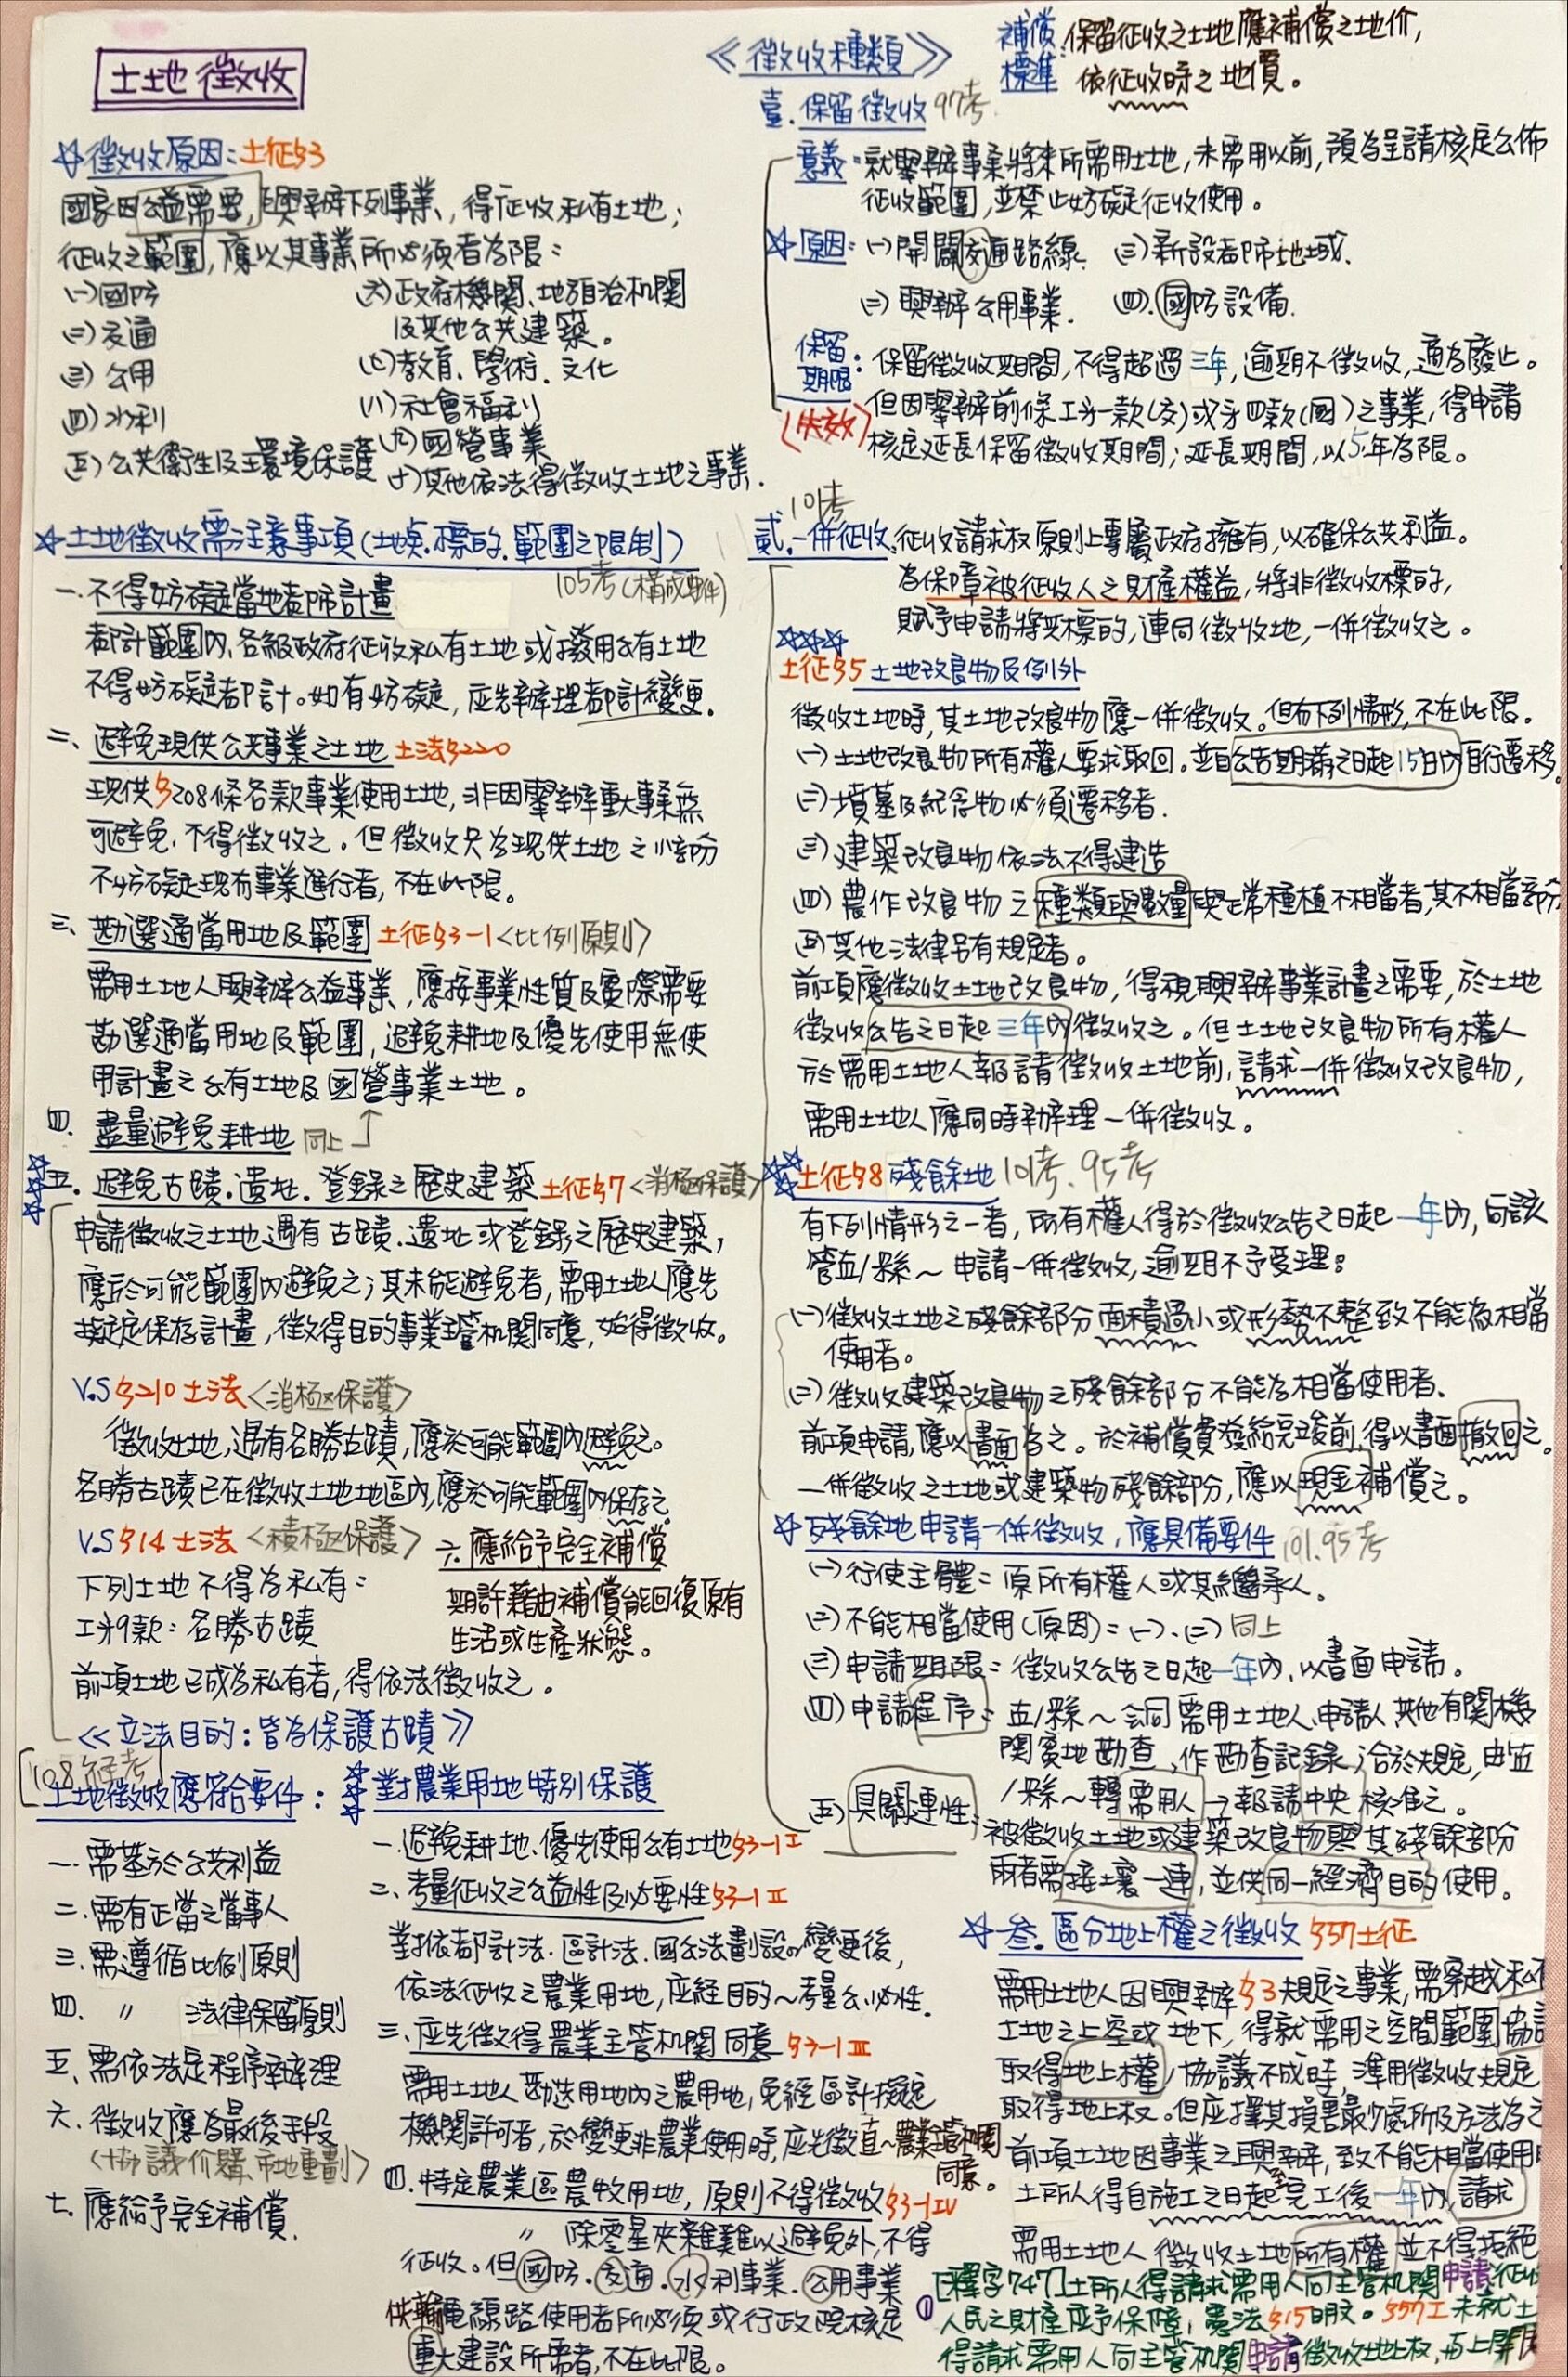 土地徵收
☆徵收原因:土征§3
國家因公益需要,興辦下列事業,得征收私有土地;
征收之範圍,應以其事業所必須者為限:
(一)國防
(二)交通
(三)公用
(四)水利
(五)公共衛生及環境保護
(六)政府機關、地方自治机関
及其他公共建築。
(七)教育.學術.文化
(八)社會福利
(九)國營事業
(十)其他依法得徵收土地之事業.
☆土地徵收需注意事項(地点.標的.範圍之限制)
105考(構成要件)
一.不得妨礙當地都市計畫
都計範圍內,各級政府征收私有土地或撥用公有土地
不得妨礙都計。如有妨礙,应先辦理都計變更.
二、避免現供公共事業之土地 土法§220
現供§208條各款事業使用土地,非因舉辦重大事業無
可避免,不得徵收之。但徵收只為現供土地之小部份
不妨礙現有事業進行者,不在此限。
三、勘選適當用地及範圍 土征§3-1<比例原則>
需用土地人興辦公益事業,應按事業性質及實際需要
勘選適當用地及範圍,避免耕地及優先使用無使
用計畫之公有土地及國營事業土地。
四. 盡量避免耕地 同上
☆☆☆五. 避免古蹟.遺址.登錄之歷史建築 土征§7<消極保護>
申請徵收之土地遇有古蹟.遺址或登錄之歷史建築,
應於可能範圍內避免之;其未能避免者,需用土地人應先
擬定保存計畫,徵得目的事業主管机関同意,始得徵收。
V.S §210土法<消極保護>
徵收土地,遇有名勝古蹟,應於可能範圍內避免之。
名勝古蹟已在徵收土地地區內,應於可能範圍內保存之
V.S §14土法 <積極保護>
下列土地不得為私有:
工第9款:名勝古蹟
前項土地已成為私有者,得依法徵收之。
六.應給予完全補償
期許藉由補償能回復原有
生活或生產狀態。
《立法目的:皆為保護古蹟》
108經考
土地徵收應符合要件:
一.需基於公共利益
二.需有正當之當事人
三.需遵循比例原則
四. 〃 法律保留原則
五.需依法定程序辦理
六.徵收應為最後手段
<協議价購、市地重劃>
七.應給予完全補償.
☆☆☆對農業用地特別保護
一.避免耕地、優先使用公有土地§3-1 I
二、考量征收之公益性及必要性§3-1 II
對依都計法.區計法.國公法劃設or變更後,
依法征收之農業用地,应經目的~考量公.必性.
三、应先徵得農業主管机関同意 §3-1 III
需用土地人勘选用地內之農用地,免經區計擬定
機関許可者,於變更非農業使用時,应先徵直~農業主管机関
同意。
四.特定農業區農牧用地,原則不得徵收§3-1 IV
〃 除零星夾雜難以避免外,不得
征收。但國防.交通.水利事業.公用事業
供輸電線路使用者所必須或行政院核定
重大建設所需者,不在此限。
《徵收種類》
補償標準:保留征收之土地應補償之地价,
依征收時之地價。
壹.保留徵收 97考
意義:就舉辦事業將來所需用土地,未需用以前,預為呈請核定公佈
征收範圍,並禁止妨礙征收使用。
☆原因:(一)開闢交通路線. (三)新設都市地域.
(二)興辦公用事業. (四).國防設備.
保留期限:保留徵收期間,不得超過三年,逾期不徵收,適為廢止。
(失效)但因舉辦前條工第一款(交)或第四款(國)之事業,得申請
核定延長保留徵收期間;延長期間,以5年為限。
101考
貳.一併征收:征收請求权原則上專屬政府擁有,以確保公共利益。
為保障被征收人之財產權益,將非徵收標的,
賦予申請將其標的,連同徵收地,一併徵收之。
☆☆☆
土征§5土地改良物及例外
徵收土地時,其土地改良物應一併徵收。但有下列情形,不在此限。
(一)土地改良物所有權人要求取回。並自公告期滿之日起15日內自行遷移.
(二)墳墓及紀念物必須遷移者.
(三)建築改良物依法不得建造
(四)農作改良物之種類與數量與正常種植不相當者,其不相當部分
(五)其他法律另有規定者。
前項應徵收土地改良物,得視興辦事業計畫之需要,於土地
徵收公告之日起三年內徵收之。但土地改良物所有權人
於需用土地人報請徵收土地前,請求一併徵收改良物,
需用土地人應同時辦理一併徵收。
☆☆☆土征§8殘餘地 101考.95考
有下列情形之一者,所有權人得於徵收公告之日起一年內,向該
管直/縣~申請一併徵收,逾期不予受理:
(一)徵收土地之殘餘部分面積過小或形勢不整致不能為相當
使用者。
(二)徵收建築改良物之殘餘部分不能為相當使用者.
前項申請,應以書面為之。於補償費發給完竣前,得以書面撤回之。
一併徵收之土地或建築物殘餘部分,應以現金補償之。
☆殘餘地申請一併徵收,應具備要件 101.95考
(一)行使主體=原所有權人或其繼承人。
(二)不能相當使用(原因)=(一)、(二)同上
(三)申請期限=徵收公告之日起一年內,以書面申請。
(四)申請程序=直/縣~会同需用土地人、申請人其他有関機
関實地勘查,作勘查記錄;合於規定,由直
/縣~轉需用人→報請中央核准之。
(五)具關連性:被徵收土地或建築改良物與其殘餘部分
兩者需接壤一連,並供同一經濟目的使用。
☆叁.區分地上權之徵收 §57土征
需用土地人因興辦§3規定之事業,需穿越私有
土地之上空或地下,得就需用之空間範圍協議
取得地上權,協議不成時,準用徵收規定
取得地上权。但应擇其損害最少處所及方法為之
前項土地因事業之興辦,致不能相當使用時
土所人得自施工之日起至完工後一年內,請求
需用土地人徵收土地所有權並不得拒絕
[釋字747]土所人得請求需用人向主管机関申請征收
①人民之財產应予保障,憲法§15明文。§57工未就土
得請求需用人向主管机関申請徵收地上权,与上開